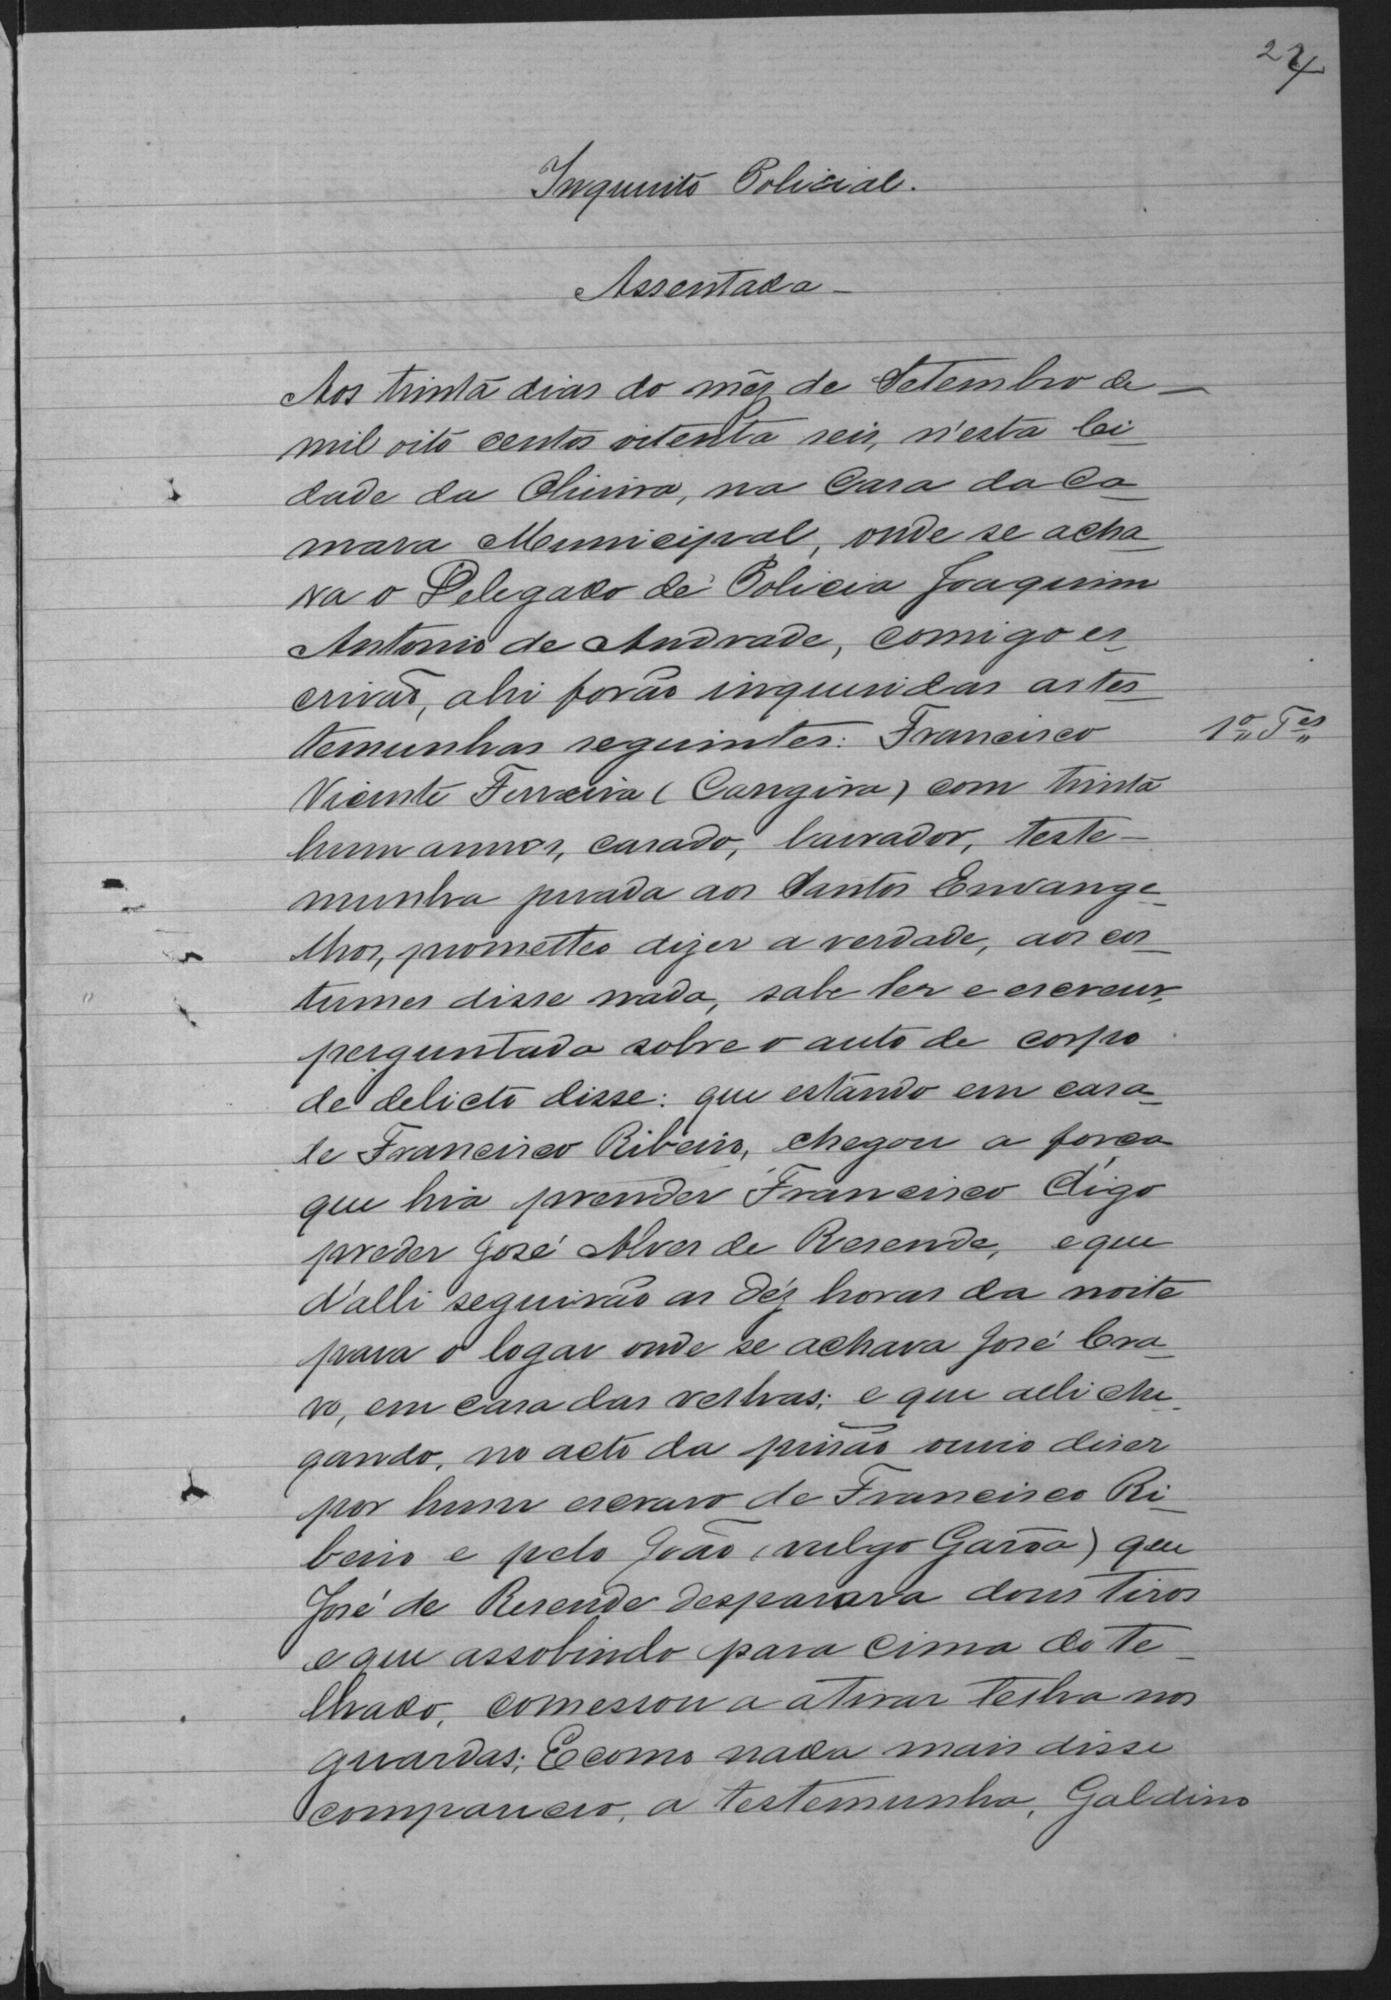 24
Inquerito Policial.
Assentada -
Aos trinta dias do mêz de Setembro de -
mil oito centos oitenta seis, n'esta Ci-
dade da Oliveira, na Casa da Ca-
mara Municipal, onde se acha-
va o Delegado de Policia Joaquim
Antonio de Andrade, comigo es-
crivão, ahi forão inqueridas as tes-
temunhas seguintes: Francisco
1º Tes
Vicente Ferreira (Cangira) com trinta
hum annos, casado, lavrador, teste-
munha jurada aos Santos Envange-
lhos, prometteo dizer a verdade, aos cos-
tumes disse nada, sabe ler e escrever,
perguntada sobre o auto de corpo
de delicto disse: que estando em casa
de Francisco Ribeiro, chegou a força
que hia prender Francisco digo
preder José Alves de Resende, e que
d'alli seguirão as déz horas da noite
para o logar onde se achava José Cra-
vo, em casa das velhas; e que alli che-
gando, no acto da prisão ouvio diser
por hum escravo de Francisco Ri-
beiro e pelo João (vulgo Garôa) que
José de Resende desparara dous tiros
e que assobindo para cima do te-
lhado, comessou a atirar telha nos
guardas; E como nada mais disse
compareceo, a testemunha, Galdino